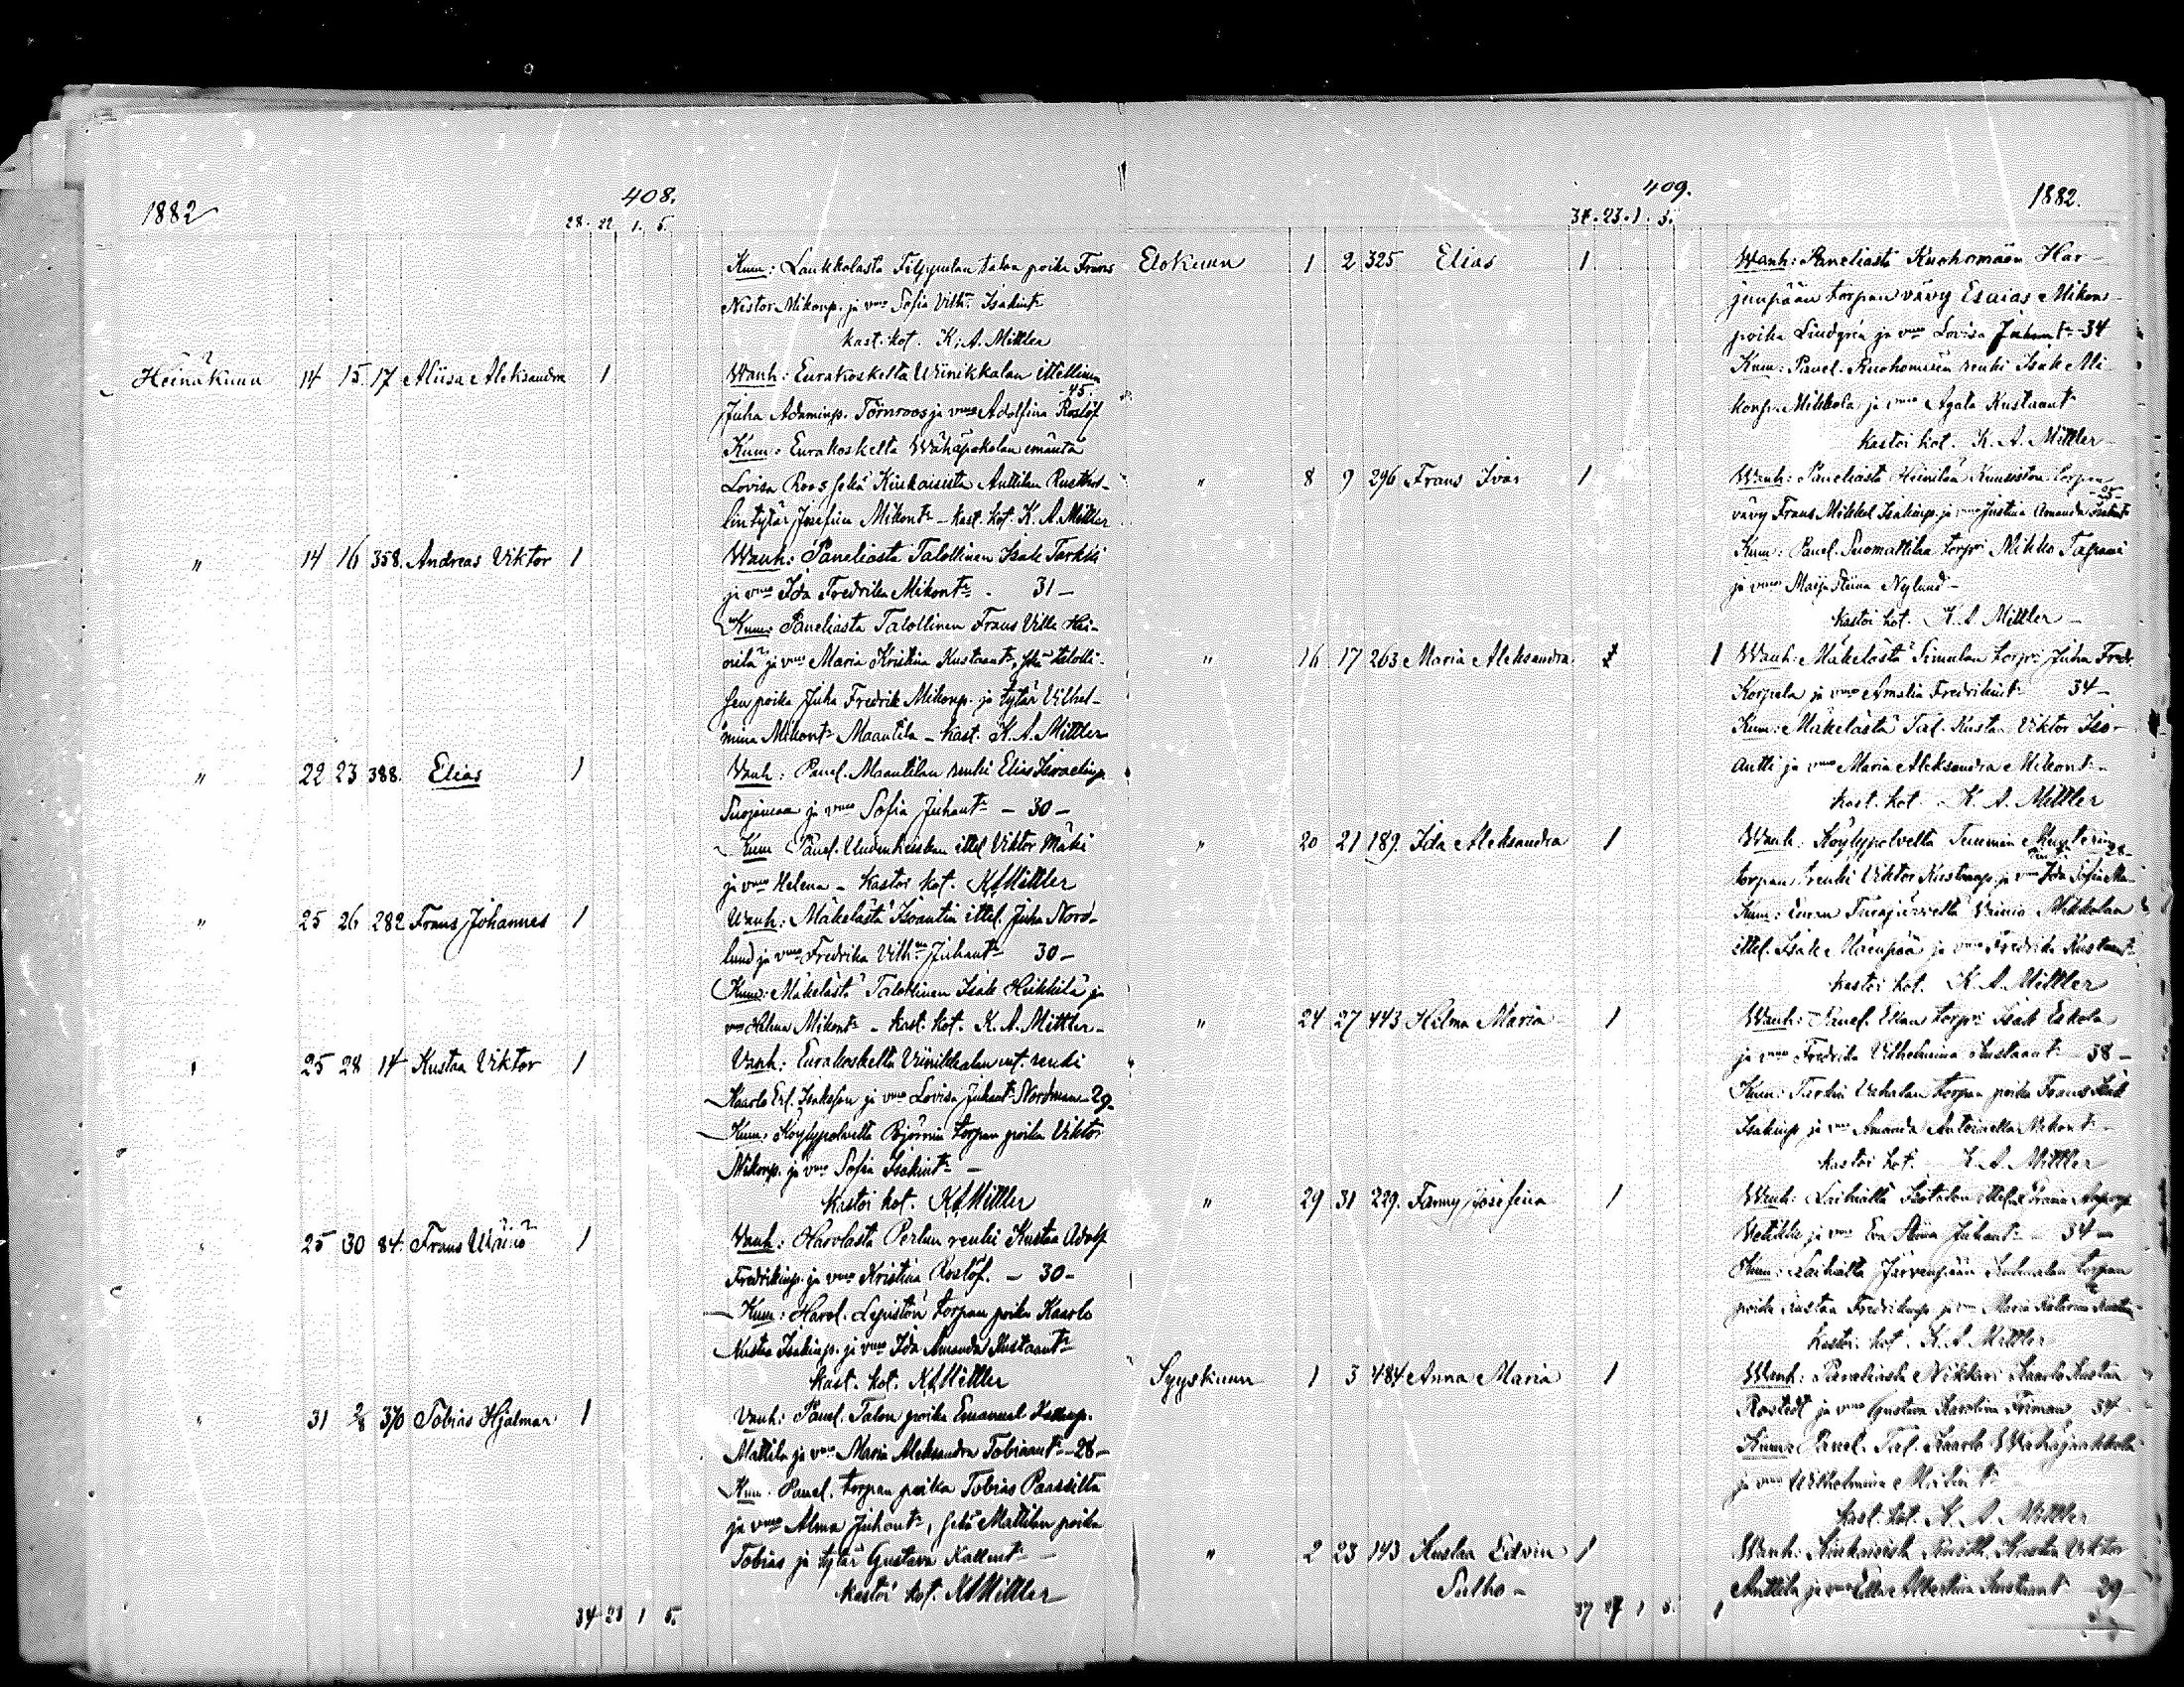 408.
1882
28. 22 1. 5.
Kum: Laukkolasta Filppulan talon poika Frans
Nestor Mikonp. ja vmo Sofia Vilh. Isakint.
kast. kot. K. A. Mittler
Heinäkuun 14 15. 17 Aliisa Aleksandra 1 Wanh: Eurakoskelta Wiinikkalan ittellinen
Juha Adaminp. Törnroos ja vmo Adolfina Roslöf 45.
Kum: Eurakoskelta Wähäpakolan emäntä
Lovisa Roos sekä Kiukaisista Anttilan Rusthol-
lin tytär Josefiin Mikont. – kast. kot. K. A. Mittler
" 14 16 358. Andreas Viktor 1 Wanh: Paneliasta Talollinen Isak Tarkki
ja vmo Ida Fredrika Mikont. . 31 –
Kum: Paneliasta Talollinen Frans Ville Hei-
nilä ja vmo Maria Kristina Kustaant., sekä talolli-
sen poika Juha Fredrik Mikonp. ja tytär Vilhel-
mina Mikont. Maantila – kast. K. A. Mittler
" 22 23 388. Elias 1 Vanh: Panel. Maantilan renki Elias Israelinp.
Suojanen ja vmo Sofia Juhant. – 30 –
Kum Panel. Uudenkeiskan ittel Viktor Mäki
ja vmo Helena – kastoi kot. K A Mittler
" 25 26 282 Frans Johannes 1 Wanh: Mäkelästä Isoantin ittel. Juha Nord-
lund ja vmo Fredrika Vilh. Juhant. 30 –
Kum: Mäkelästä Talollinen Isak Heikkilä ja
vmo Helena Mikont. – kast. kot. K. A. Mittler –
" 25 28 14 Kustaa Viktor 1 Vanh: Eurakoskelta Viinikkalan ent. renki
Kaarlo Erl. Isaksson ja vmo Lovisa Juhant. Nordman – 29.
Kum: Köylypolvelta Björnin torpan poika Viktor
Mikonp. ja vmo Sofia Isakint. –
Kastoi kot. K A Mittler
" 25 30 84. Frans Wäinö 1 Vanh: Harolasta Perhun renki Kustaa Adolf
Fredrikinp. ja vmo Kristina Roslöf. – 30 –
Kum: Harol. Lepistön torpan poika Kaarlo
Nestor Isakinp. ja vmo Ida Amanda Kustaant.
kast. kot. K A Mittler
" 31 2/8 370 Tobias Hjalmar 1 Vanh: Panel. Talon poika Emanuel
Mattila ja vmo Maria Aleksandra Tobiaant. – 28 –
Kum. Panel. torpan poika Tobias Paassilta
ja vmo Alma Juhont., sekä Mattilan poika
Tobias ja tytär Gustava Kallent. –
kastoi kot. K A Mittler
34 23 1 5.
409.
1882.
34. 23. 1. 5.
Elokuun 1 2 325 Elias 1 Wanh: Paneliasta Kuohomäen Har-
junpään torpan vävy Esaias Mikon-
poika Lindgren ja vmo Lovisa Juhant. – 34
Kum: Panel. Ruohomäen renki Isak Mi-
konp. Mikkola ja vmo Agata Kustaant.
kastoi kot. K. A. Mittler –
" 8 9 296 Frans Ivar 1 Wanh: Paneliasta Heinilän Kuusiston torpan
vävy Frans Mikkel Isakinp. ja vmo Justina Amanda Isakint.
Kum: Panel. Suomattilan torp. Mikko Tapani
ja vmo Maija Stiina Nylund –
kastoi kot. K. A Mittler –
" 16 17 263 Maria Aleksandra 1 Wanh: Mäkelästä Simulan torp. Juha Fredr.
Korpela ja vmo Amalia Fredrikint. 34 –
Kum: Mäkelästä Tal. Kustaa Viktor Iso-
antti ja vmo Maria Aleksandra Mikont. –
kast. kot. K. A. Mittler
" 20 21 189. Ida Aleksandra 1 Wanh: Köylypolvelta
torpan renki Viktor Kustaanp. ja vmo Ida Sofia 28 –
Kum: Euran Turajärveltä Väinio Mikkolan
ittel. Isak Mäenpää ja vmo Fredrika Kustaant.
kastoi kot. K. A. Mittler
" 24 27 443 Hilma Maria 1 Wanh: Panel. torp. Isak Eskola
ja vmo Fredrika Vilhelmina Kustaant. – 38 –
Kum: Tarkin torpan poika Frans Isak
Isakinp. ja vmo Amanda Antoinetta Mikont. –
kastoi kot. K. A. Mittler
" 29 31 229. Fanny Josefina 1 Wanh: Laihialta
ja vmo Eva Stiina Juhant. – 34 –
Kum: Laihialta Järvenpään torpan
poika Kustaa Fredrikinp. ja vmo Maria Katarina
kastoi kot. K. A. Mittler
Syyskuun 1 3 484 Anna Maria 1 Wanh: Paneliasta Nikkari Kaarlo Kustaa
Rostedt ja vmo Gustava Karolina Friman 34 –
Kum: Panel. Tal. Kaarlo Wähäjaakkola
ja vmo Wilhelmina
kast. kot. K. A. Mittler
" 2 23 143 Kustaa Edvin 1 Wanh: Kiukaisista Rusth. Kustaa Viktor
Sulho – Anttila ja vmo Ella Albertina Kustaant. 29 –
37 27 1 5. 1